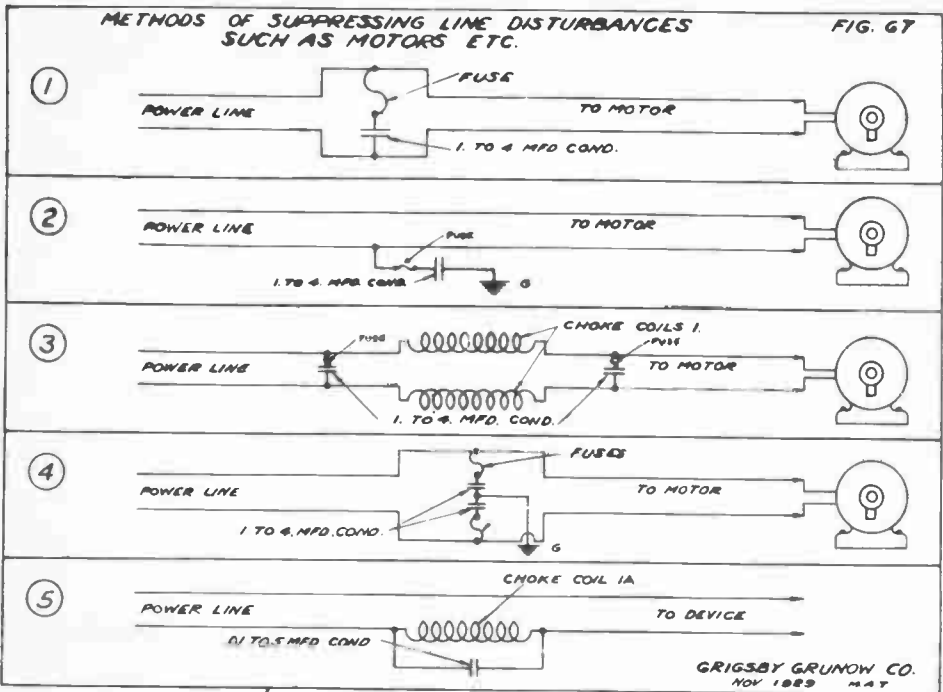 METHODS OF SUPPRESSING LINE DISTURBANCES
SUCH AS MOTORS ETC.
FIG. 67
1
POWER LINE
FUSE
TO MOTOR
1. TO 4 MFD COND.
2
POWER LINE
TO MOTOR
FUSE
1. TO 4. MFD. COND.
G
3
POWER LINE
FUSE
CHOKE COILS 1.
FUSE
TO MOTOR
1. TO 4. MFD. COND.
4
POWER LINE
FUSES
TO MOTOR
1 TO 4. MFD. COND.
G
5
POWER LINE
CHOKE COIL 1A
TO DEVICE
MFD COND
GRIGSBY GRUNOW CO.
NOV 1929 M.A.T